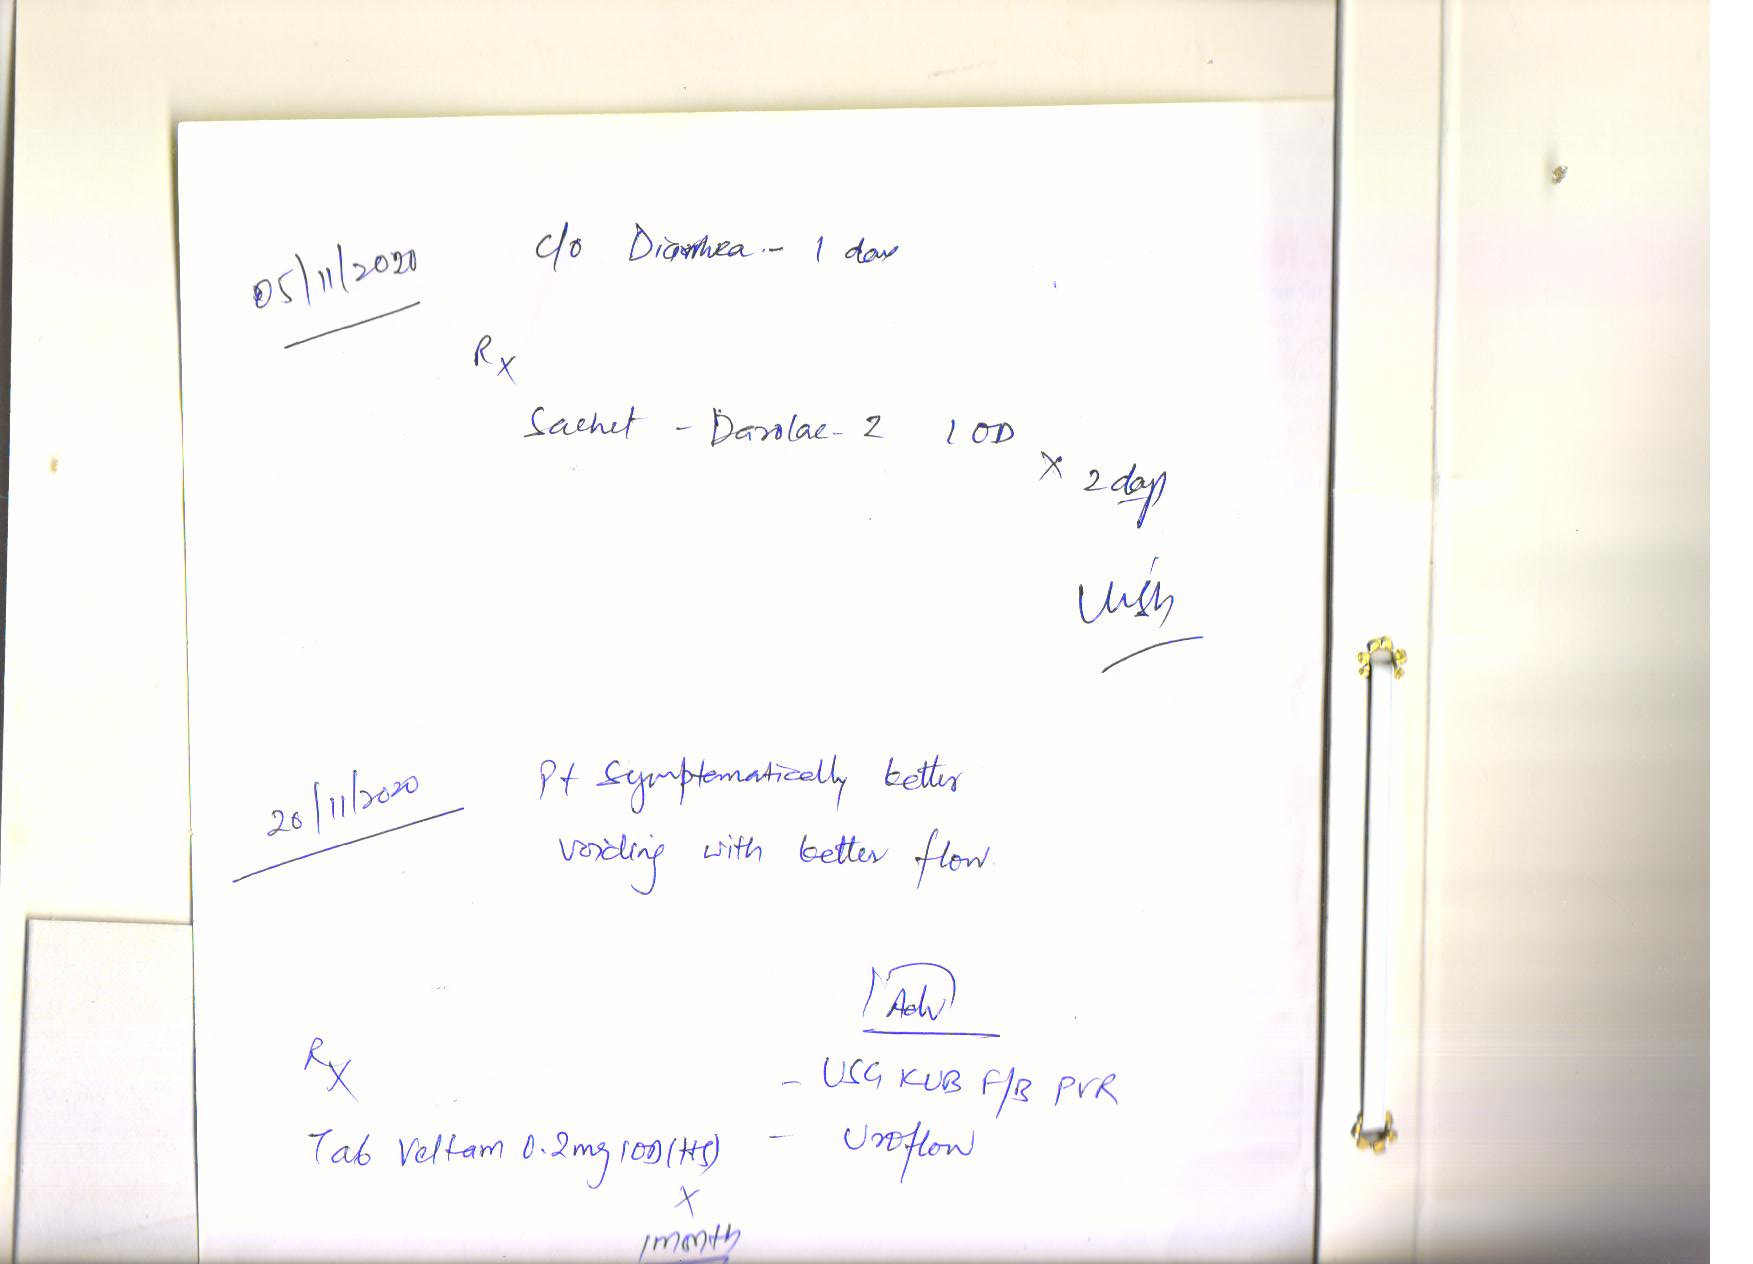 05/11/2020
c/o Diarrhea - 1 day
Rx
Sachet - Darolac - 2 1 OD
x 2 days
20/11/2020
Pt Symptomatically better
voiding with better flow.
Adv
Rx
- USG KUB F/B PVR
Tab Veltam 0.2mg 1OD (HS)
- Uroflow
x
1 month